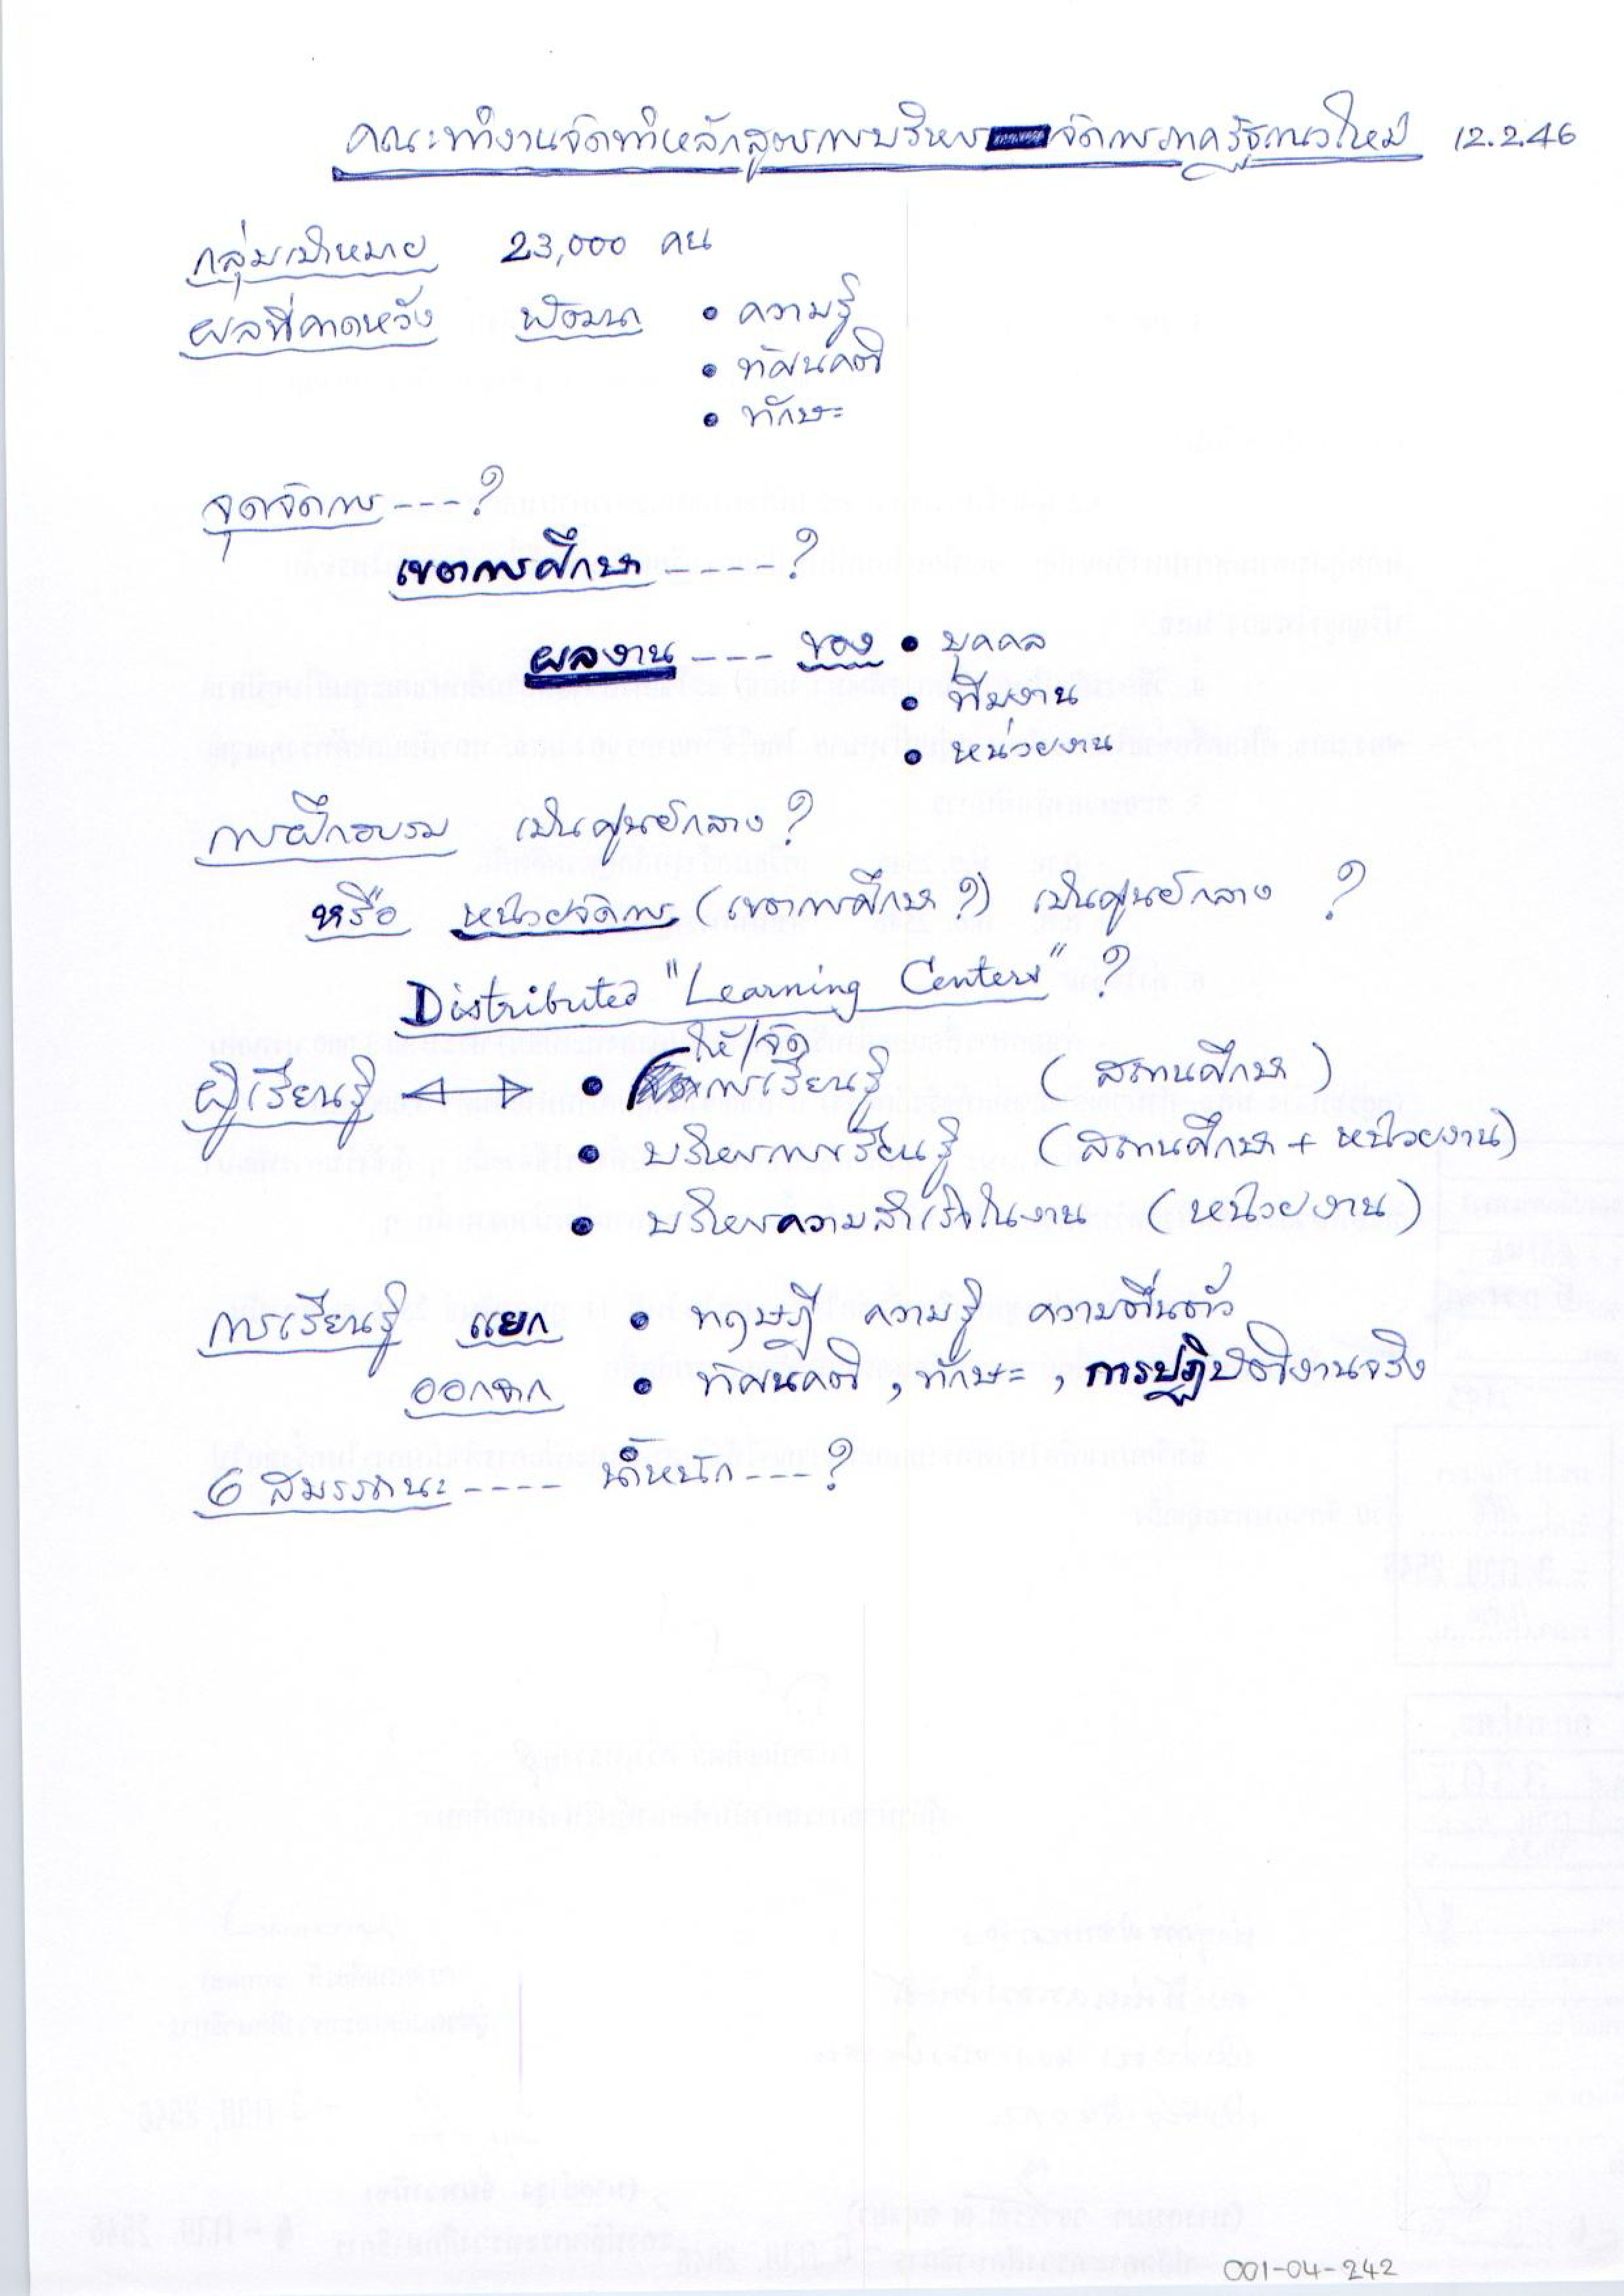 คณะทำงานจัดทำหลักสูตรการบริหารจัดการภาครัฐแนวใหม่ 12.2.46
กลุ่มเป้าหมาย 23,000 คน
ผลที่คาดหวัง พัฒนา • ความรู้
• ทัศนคติ
• ทักษะ
จุดจัดการ ---?
เขตการศึกษา ----?
ผลงาน --- ของ • บุคคล
• ทีมงาน
• หน่วยงาน
การฝึกอบรม เป็นศูนย์กลาง?
หรือ หน่วยจัดการ (เขตการศึกษา?) เป็นศูนย์กลาง ?
Distributed "Learning Centers" ?
ให้/จัด
ผู้เรียนรู้ ⟷ • การเรียนรู้ (สถานศึกษา)
• บริหารการเรียนรู้ (สถานศึกษา + หน่วยงาน)
• บริหารความสำเร็จในงาน (หน่วยงาน)
การเรียนรู้ แยก • ทฤษฎี ความรู้ ความตื่นตัว
ออกจาก • ทัศนคติ, ทักษะ, การปฏิบัติงานจริง
6 สมรรถนะ ---- น้ำหนัก ---?
001-04-242